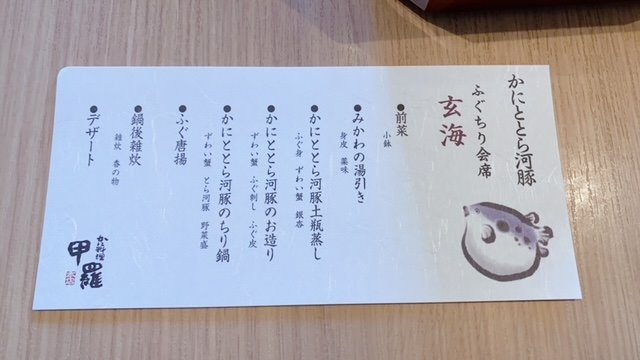 かにととら河豚
ふぐちり会席
玄海
●前菜
小鉢
●みかわの湯引き
身皮 薬味
●かにととら河豚土瓶蒸し
ふぐ身 ずわい蟹 銀杏
●かにととら河豚のお造り
ずわい蟹 ふぐ刺し ふぐ皮
●かにととら河豚のちり鍋
ずわい蟹 とら河豚 野菜盛
●ふぐ唐揚
●鍋後雑炊
雑炊 香の物
●デザート
かに料理
甲羅